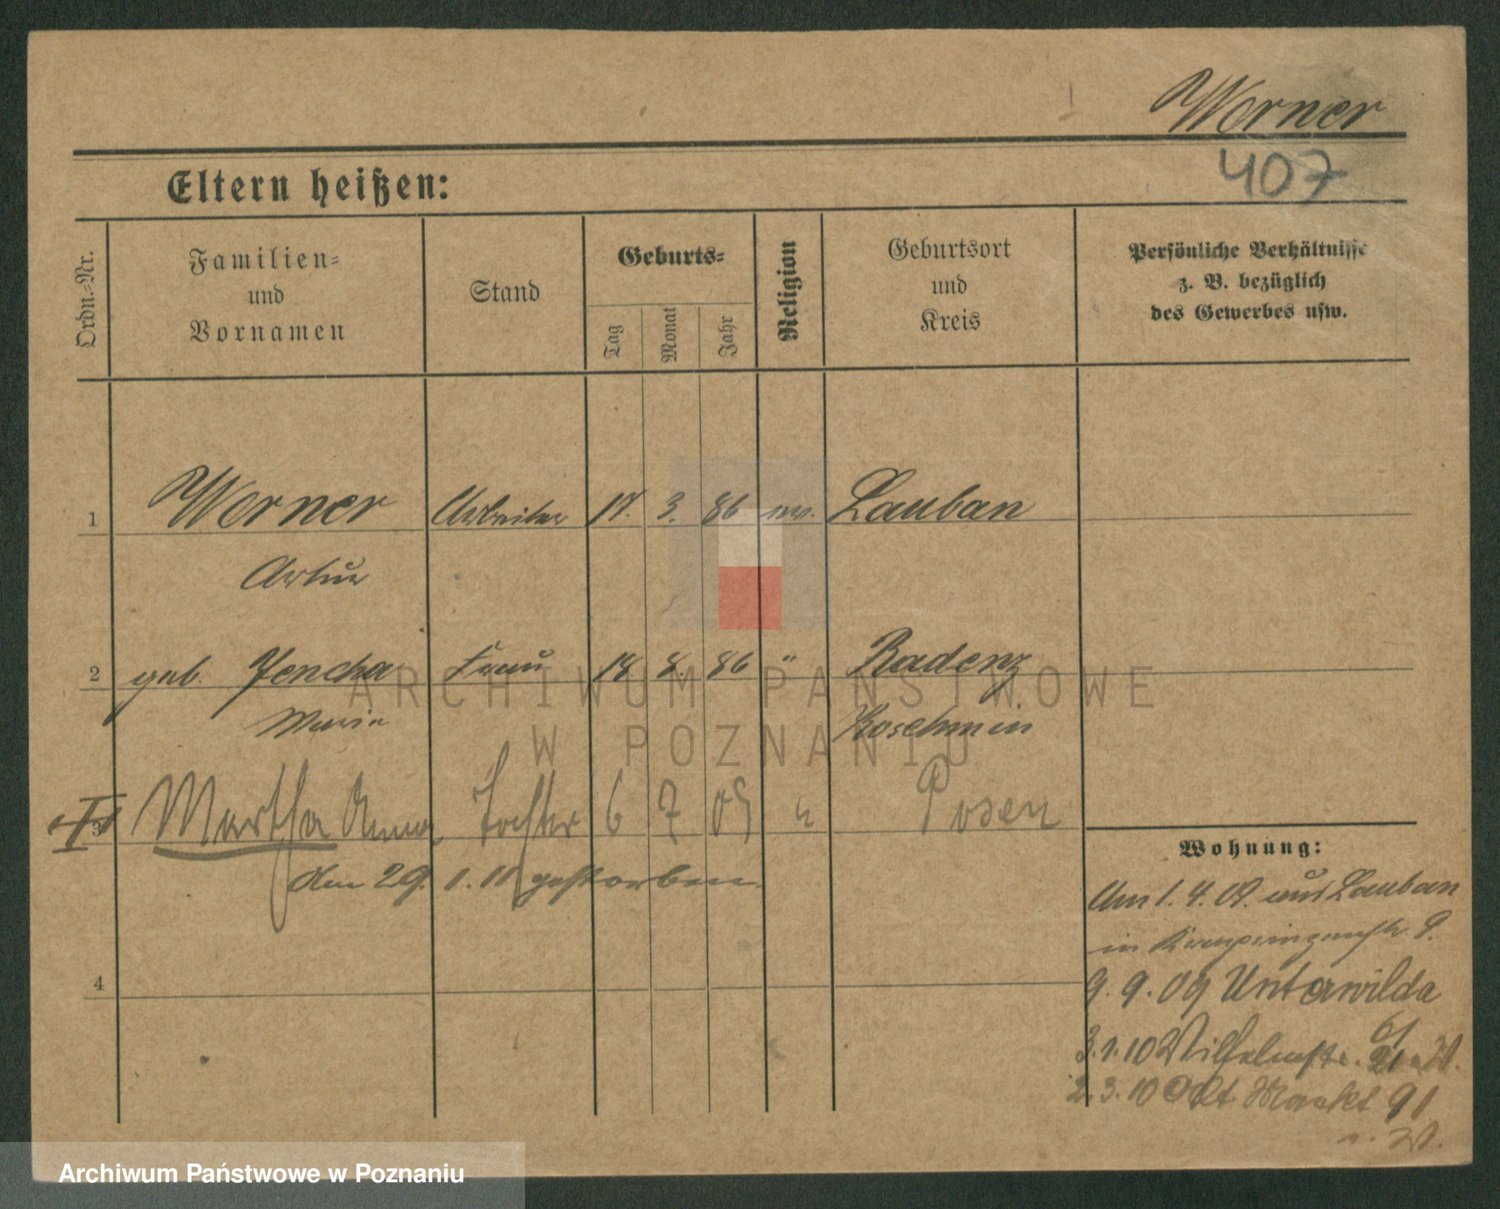 Werner
407
Eltern heißen:
Ordn.-Nr.
Familien-
und
Vornamen
Stand
Geburts-
Tag
Monat
Jahr
Religion
Geburtsort
und
Kreis
Persönliche Verhältnisse
z. B. bezüglich
des Gewerbes usw.
1 Werner Arbeiter 17. 3. 86 ev. Lauban
Artur
2 geb. Jencha Frau 18. 8. 86 " Radenz
Marie Koschmin
3 Martha Anna Tochter 6 7 09 " Posen
Am 29. 1. 11 gestorben
4
Wohnung:
Am 1. 4. 09. aus Lauban
in Kronprinzenstr. 9.
9. 9. 09 Unterwilda
61
3. 1. 10 Wilhelmstr. 21
2. 3. 10 Alt. Markt 91
ARCHIWUM PAŃSTWOWE
W POZNANIU
Archiwum Państwowe w Poznaniu